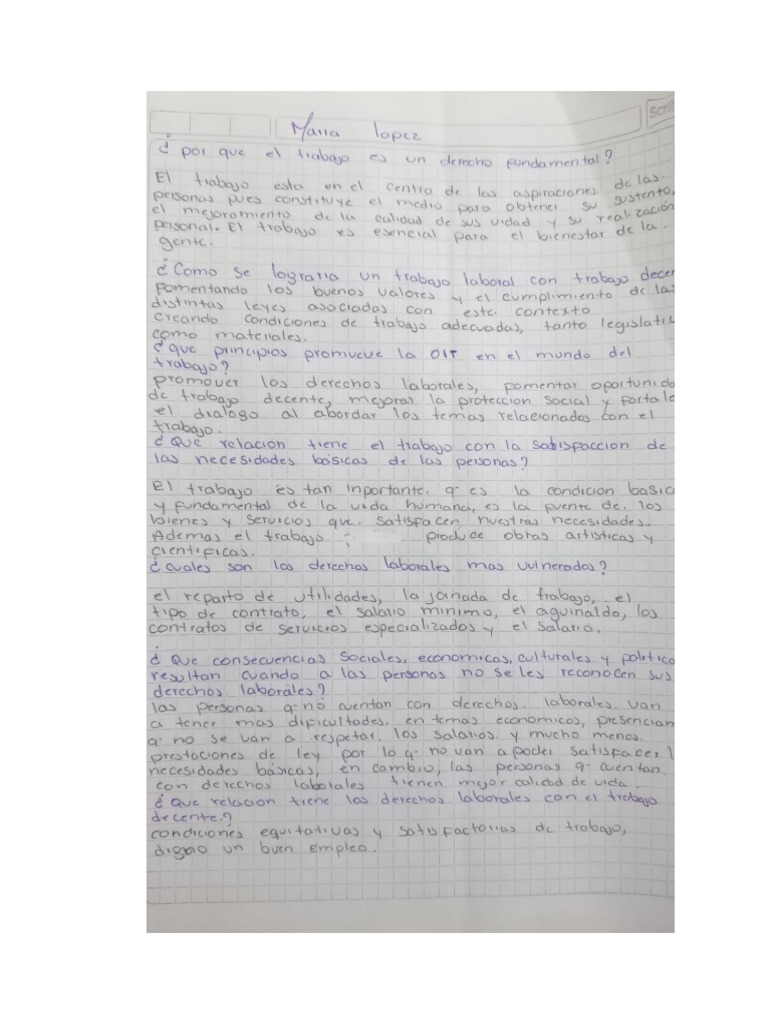 Scri
Maria lopez
¿ por que el trabajo es un derecho fundamental?
El trabajo esta en el centro de las aspiraciones de las.
personas pues constituye el medio para obtener su sustento,
el mejoramiento de la calidad de sus vidad y su realización
personal. El trabajo es esencial para el bienestar de la
gente.
¿ Como se lograria un trabajo laboral con trabajo decen
fomentando los buenos valores y el cumplimiento de las
distintas leyes asociadas con este. contexto
creando condiciones de trabajo adecuadas, tanto legislativ
como materiales.
¿ que principios promueve la OIT en el mundo del
trabajo?
promover los derechos laborales, fomentar oportunida
de trabajo decente, mejorar la proteccion social y fortale
el dialogo al abordar los temas relacionados con el
trabajo.
¿ Que relacion tiene el trabajo con la satisfaccion de
las necesidades básicas de las personas?
El trabajo es tan inportante. q- es la condicion basica
y fundamental de la vida humana, es la fuente de. los
bienes y servicios que. satisfacen nuestras necesidades.
Ademas el trabajo : produce obras artisticas y
cientificas.
¿ cuales son los derechos laborales mas vulnerados?
el reparto de utilidades, la jornada de trabajo, el
tipo de contrato, el salario minimo, el aguinaldo, los
contratos de servicios especializados y el salario.
¿ Que consecuencias sociales, economicas, culturales y politica
resultan cuando a las personas no se les reconocen sus
derechos laborales?
las personas q- no cuentan con derechos. laborales. van
a tener mas dificultades. en temas economicos, presencian
q- no se van a respetar. los salarios. y mucho menos.
prestaciones de ley por lo q- no van a poder satisfacer l
necesidades básicas, en cambio, las personas q- cuentan.
con derechos laborales tienen mejor calidad de vida.
¿ que relacion tiene los derechos laborales con el trabajo
decente.?
condiciones equitativas y satisfactorias de trabajo,
digno un buen Empleo.